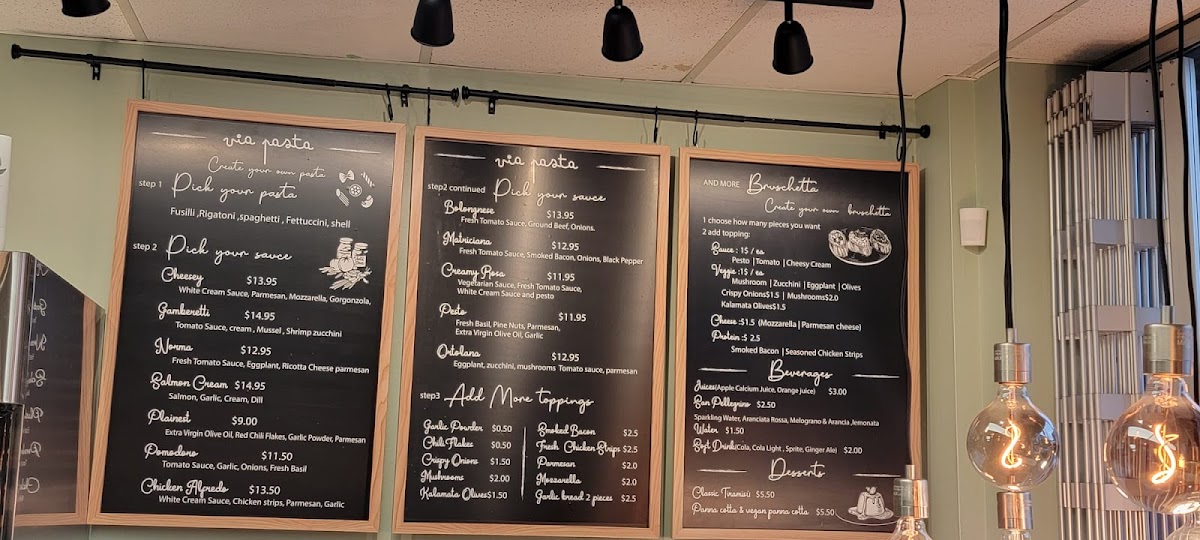 via pasta
Create your own pasta
step 1 Pick your pasta
Fusilli ,Rigatoni ,spaghetti , Fettuccini, shell
step 2 Pick your sauce
Cheesey $13.95
White Cream Sauce, Parmesan, Mozzarella, Gorgonzola,
Gamberetti $14.95
Tomato Sauce, cream , Mussel , Shrimp zucchini
Norma $12.95
Fresh Tomato Sauce, Eggplant, Ricotta Cheese parmesan
Salmon Cream $14.95
Salmon, Garlic, Cream, Dill
Plainest $9.00
Extra Virgin Olive Oil, Red Chili Flakes, Garlic Powder, Parmesan
Pomodoro $11.50
Tomato Sauce, Garlic, Onions, Fresh Basil
Chicken Alfredo $13.50
White Cream Sauce, Chicken strips, Parmesan, Garlic
via pasta
step2 continued Pick your sauce
Bolongnese $13.95
Fresh Tomato Sauce, Ground Beef, Onions.
Matriciana $12.95
Fresh Tomato Sauce, Smoked Bacon, Onions, Black Pepper
Creamy Rosa $11.95
Vegetarian Sauce, Fresh Tomato Sauce,
White Cream Sauce and pesto
Pesto $11.95
Fresh Basil, Pine Nuts, Parmesan,
Extra Virgin Olive Oil, Garlic
Ortolana $12.95
Eggplant, zucchini, mushrooms Tomato sauce, parmesan
step3 Add More toppings
Garlic Powder $0.50
Chili Flakes $0.50
Crispy Onions $1.50
Mushrooms $2.00
Kalamata Olives$1.50
Smoked Bacon $2.5
Fresh Chicken Strips $2.5
Parmesan $2.0
Mozzarella $2.0
Garlic bread 2 pieces $2.5
AND MORE Bruschetta
Create your own bruschetta
1 choose how many pieces you want
2 add topping:
Sauce : 1$ / ea
Pesto | Tomato | Cheesy Cream
Veggie :1$ / ea
Mushroom | Zucchini | Eggplant | Olives
Crispy Onions$1.5 | Mushrooms$2.0
Kalamata Olives$1.5
Cheese :$1.5 (Mozzarella | Parmesan cheese)
Protein :$ 2.5
Smoked Bacon | Seasoned Chicken Strips
Beverages
Juices(Apple Calcium Juice, Orange juice) $3.00
San Pellegrino $2.50
Sparkling Water, Aranciata Rossa, Melograno & Arancia ,lemonata
Water $1.50
Soft Drink(Cola, Cola Light , Sprite, Ginger Ale) $2.00
Desserts
Classic Tiramisù $5.50
Panna cotta & vegan panna cotta $5.50